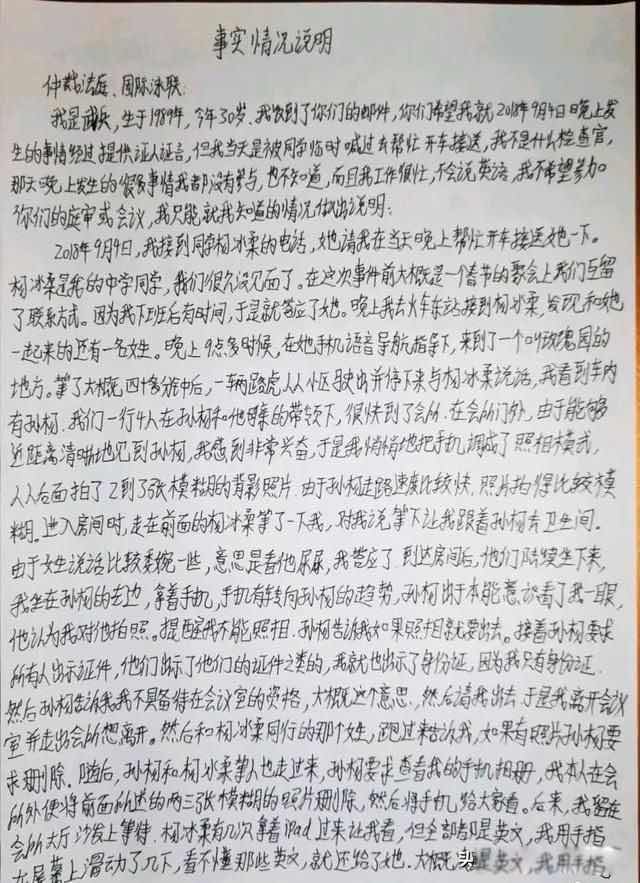 事实情况说明
仲裁法庭、国际泳联:
我是武兵,生于1989年,今年30岁,我收到了你们的邮件,你们希望我就2018年9月4日晚上发
生的事情经过提供证人证言,但我当天是被同学临时喊过去帮忙开车接送,我不是什么检查官,
那天晚上发生的很多事情我都没有参与,也不知道,而且我工作很忙,不会说英语,我不希望参加
你们的庭审或会议,我只能就我知道的情况做出说明:
2018年9月4日,我接到同学杨冰柔的电话,她请我在当天晚上帮忙开车接送她一下。
杨冰柔是我的中学同学,我们很久没见面了。在这次事件前大概是一个春节的聚会上我们互留
了联系方式。因为我下班后有时间,于是就答应了她。晚上我去火车东站接到杨冰柔,发现和她
一起来的还有一名女生。晚上9点多时候,在她手机语音导航指导下,来到了一个叫玫瑰园的
地方。等了大概四十多分钟后,一辆路虎从小区驶出并停下来与杨冰柔说话,我看到车内
有孙杨.我们一行4人在孙杨和他母亲的带领下,很快到了会所.在会所门外,由于能够
近距离清晰地见到孙杨,我感到非常兴奋,于是我悄悄地把手机调成了照相模式,
从后面拍了2到了3张模糊的背影照片.由于孙杨走路速度比较快.照片拍得比较模
糊。进入房间时,走在前面的杨冰柔等了一下我,对我说等下让我跟着孙杨去卫生间。
由于女生说话比较委婉一些,意思是看他尿尿,我答应了.到达房间后,他们陆续坐下来,
我坐在孙杨的左边,拿着手机,手机有转向孙杨的趋势,孙杨出于本能意识看了我一眼,
他认为我对他拍照。提醒我不能照相.孙杨告诉我如果照相就要出去。接着孙杨要求
所有人出示证件,他们出示了他们的证件之类的,我就也出示了身份证,因为我只有身份证.
然后孙杨告诉我我不具备待在会议室的资格,大概这个意思.然后请我出去.于是我离开会议
室并走出会所想离开。然后和杨冰柔同行的那个女生,跑过来告诉我,如果有照片孙杨要
求删除.随后,孙杨和杨冰柔等人也走过来,孙杨要求查看我的手机相册,我本人在会
所外便将前面所述的两三张模糊的照片删除,然后将手机给大家看。后来,我留在
会所大厅沙发上等待.杨冰柔有几次拿着iPad过来让我看,但全部都是英文,我用手指
在屏幕上滑动了几下,看不懂那些英文,就还给了她.大概 是英文,我用手指